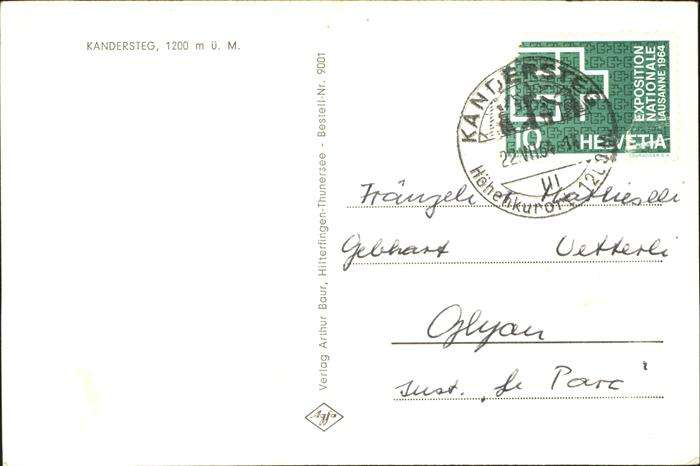 KANDERSTEG, 1200 m ü. M.
Verlag Arthur Baur, Hilterfingen-Thunersee - Bestell-Nr. 9001
Agfa
KANDERSTEG
22.VII.64
Höhenkurort 1200
10
HELVETIA
EXPOSITION
NATIONALE
LAUSANNE 1964
Fränzeli
Gebhart Vetterli
Inst. „Le Parc"